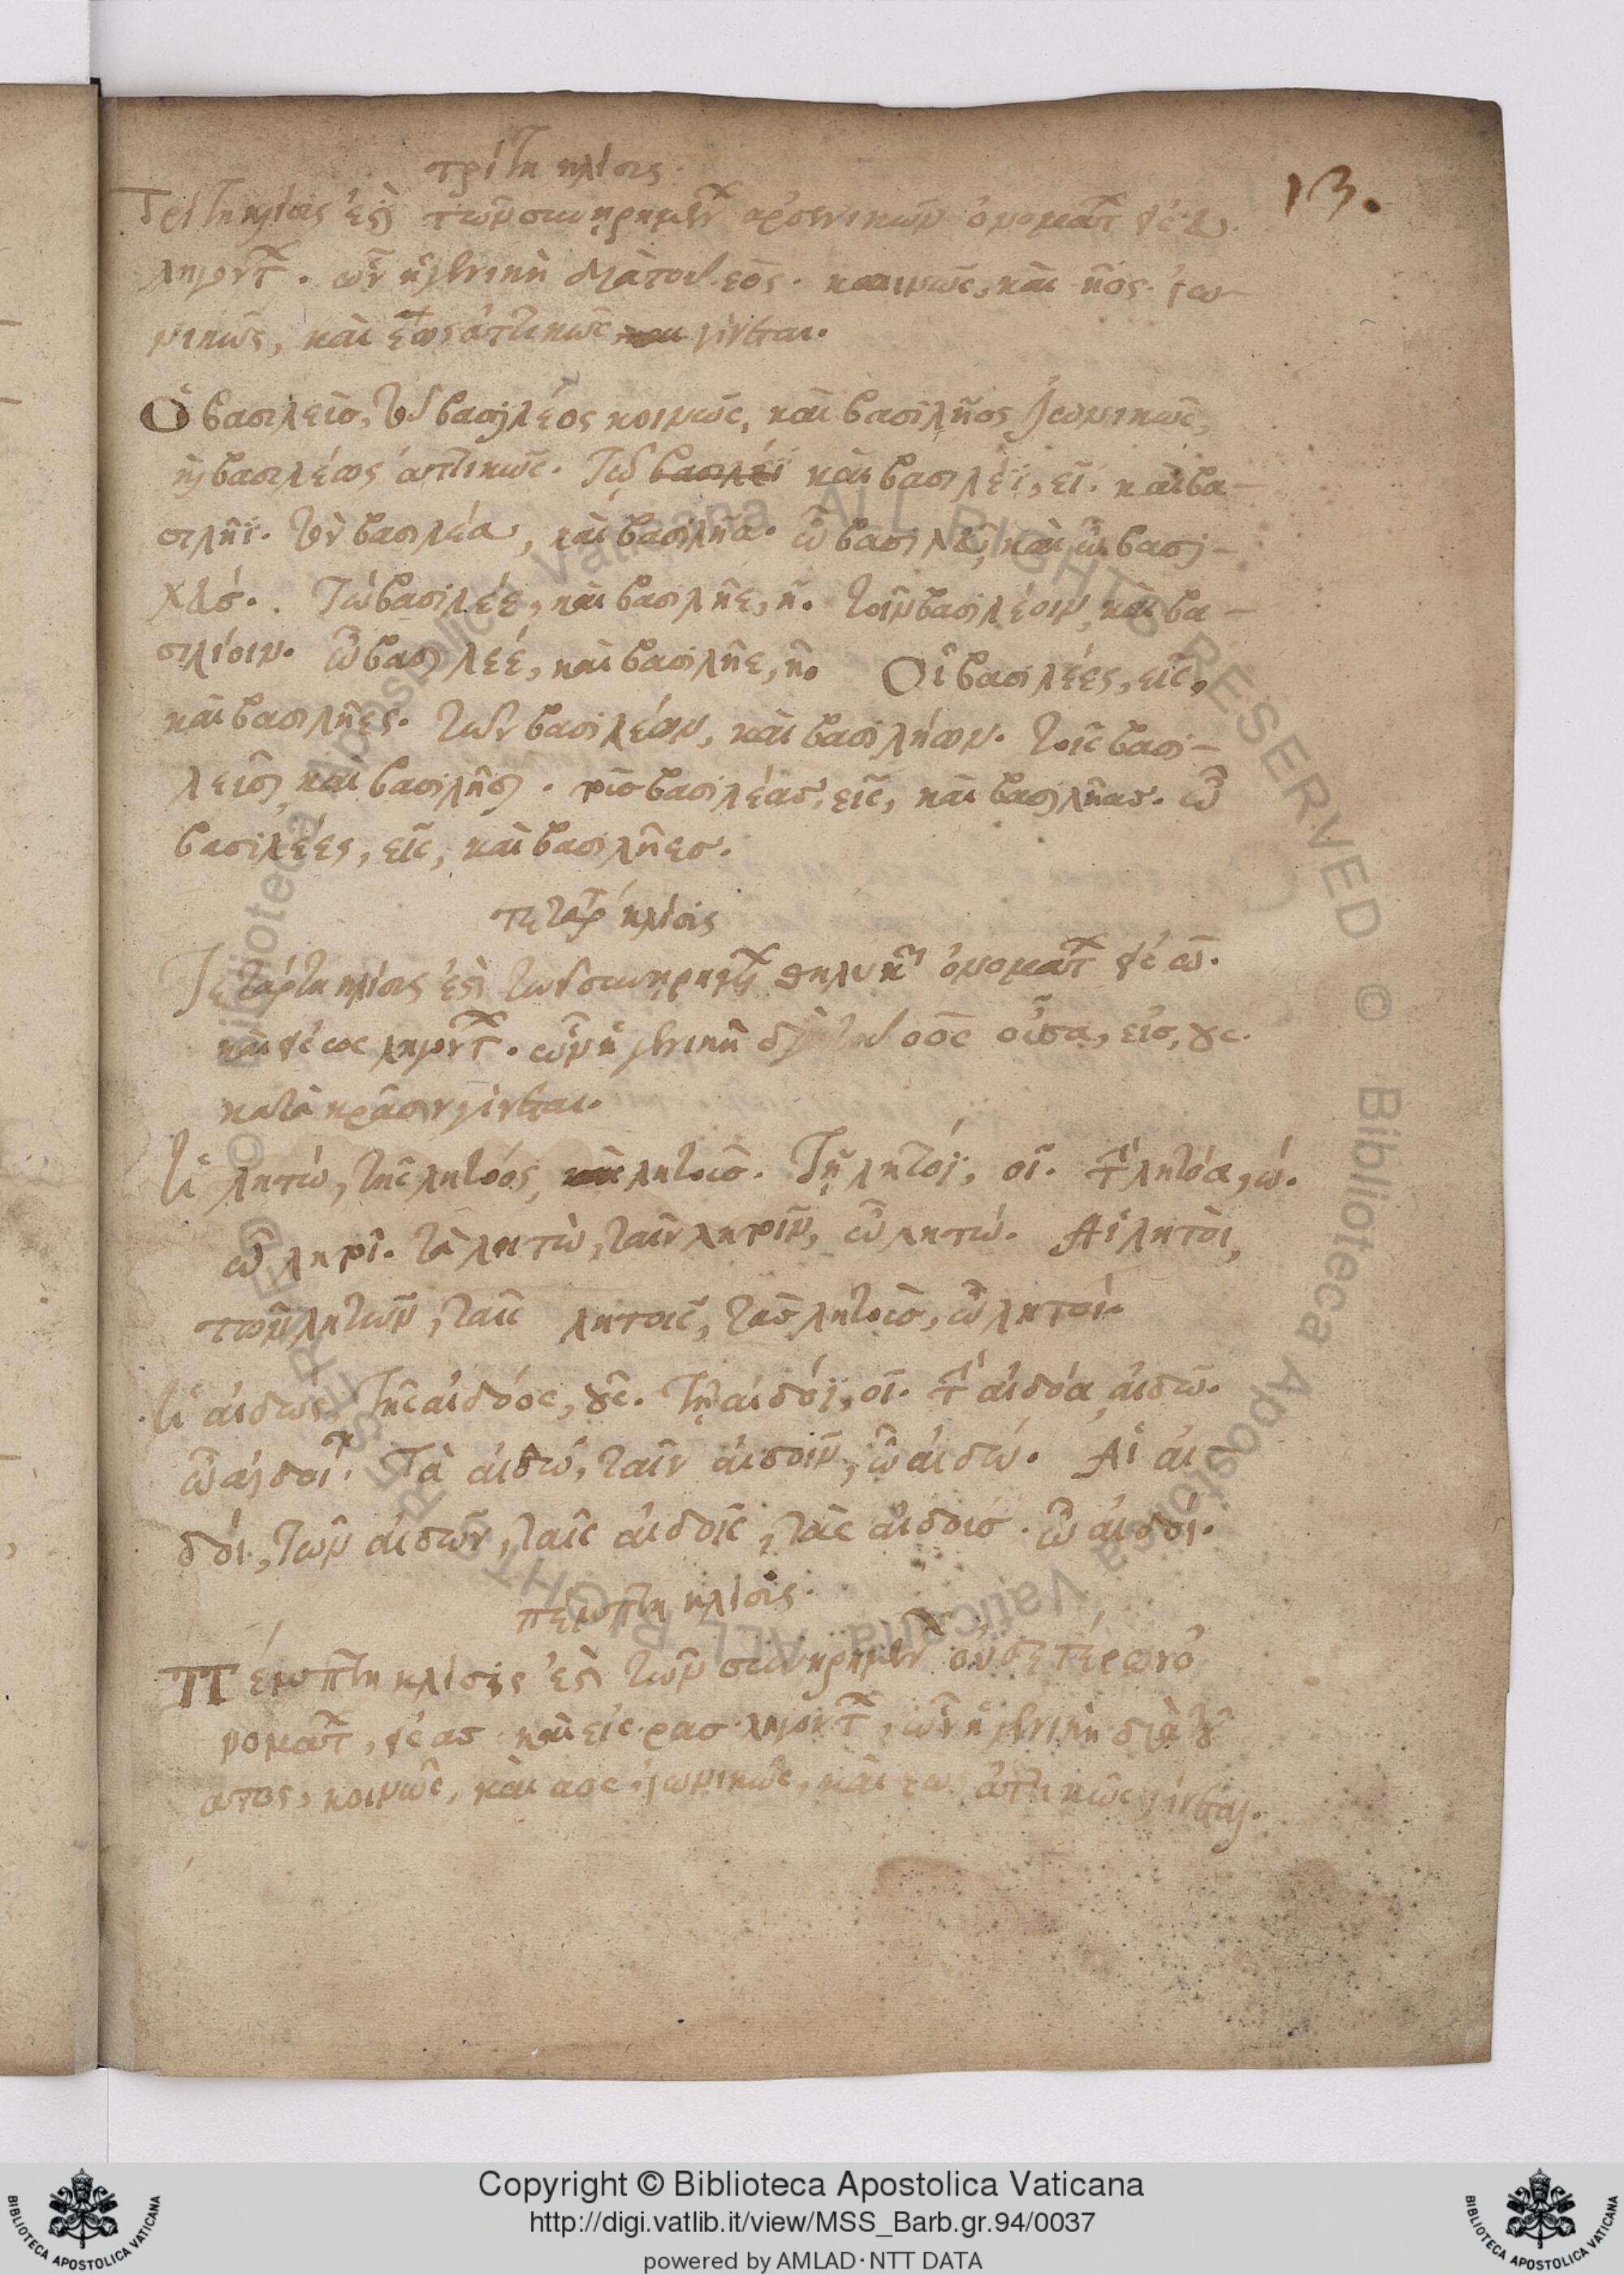 τρίτη κλίσις.
13.
Τρίτη κλίσις ἐστὶ τῶν συνῃρημέν ἀρσενικῶν ὀνομάτ
ληγοντ. ὧν ἡ γενικὴ διὰ τοῦ εος. κοινῶς, καὶ ῆος. ἰω-
νικῶς, καὶ έως ἀττικῶς γίνεται.
Ὁ βασιλεὺς, τοῦ βασιλέος κοινῶς, καὶ βασιλῆος ἰωνικῶς,
ἢ βασιλέως ἀττικῶς. Τῷ βασιλέϊ καὶ βασιλέϊ, εῖ. καὶ βα-
σιλῆϊ. τὸν βασιλέα, καὶ βασιλῆα. ὦ βασιλεῦ, καὶ ὦ βασι-
λεύ. Τὼ βασιλέε, καὶ βασιλῆε, ῆ. τοῖν βασιλέοιν, καὶ βα-
σιλήοιν. ὦ βασιλέε, καὶ βασιλῆε, ῆ. Οἱ βασιλέες, εῖς,
καὶ βασιλῆες. τῶν βασιλέων, καὶ βασιλήων. τοῖς βασι-
λεῦσι καὶ βασιλῆσι. τοὺς βασιλέας, εῖς, καὶ βασιλῆας. ὦ
βασιλέες, εῖς, καὶ βασιλῆες.
τετάρ κλίσις
Τετάρτη κλίσις ἐστὶ τῶν συνῃρημ θηλυκ ὀνομάτ ῶ.
ληγοντ. ὧν ἡ γενικὴ διὰ τοῦ οος οὖσα, εἰς, ους.
κατὰ κρᾶσιν γίνεται.
ἡ λητώ, τῆς λητόος, λητοῦς. Τῇ λητόϊ, οῖ. τὴν λητόα, ώ.
ὦ λητοῖ. τὰ λητὼ, ταῖν λητοῖν, ὦ λητώ. Αἱ λητοὶ,
τῶν λητῶν, ταῖς λητοῖς, τὰς λητοὺς, ὦ λητοί.
ἡ αἰδὼς, τῆς αἰδόος, οῦς. Τῇ αἰδόϊ, οῖ. τὴν αἰδόα, αἰδῶ.
ὦ αἰδοῖ. Τὰ αἰδώ, ταῖν αἰδοῖν, ὦ αἰδώ. Αἱ αἰ-
δοί, τῶν αἰδῶν, ταῖς αἰδοῖς, τὰς αἰδοὺς. ὦ αἰδοί.
πέμπτη κλίσις.
Πέμπτη κλίσις ἐστὶ τῶν συνῃρημέν οὐδετέρων ὀ
νομάτ, εἰς ας καὶ εἰς ρας ληγοντ, ὧν ἡ γενικὴ διὰ τοῦ
ατος, κοινῶς, καὶ αος ἰωνικῶς, καὶ ἀττικῶς γίνεται.
Copyright © Biblioteca Apostolica Vaticana
http://digi.vatlib.it/view/MSS_Barb.gr.94/0037
powered by AMLAD·NTT DATA